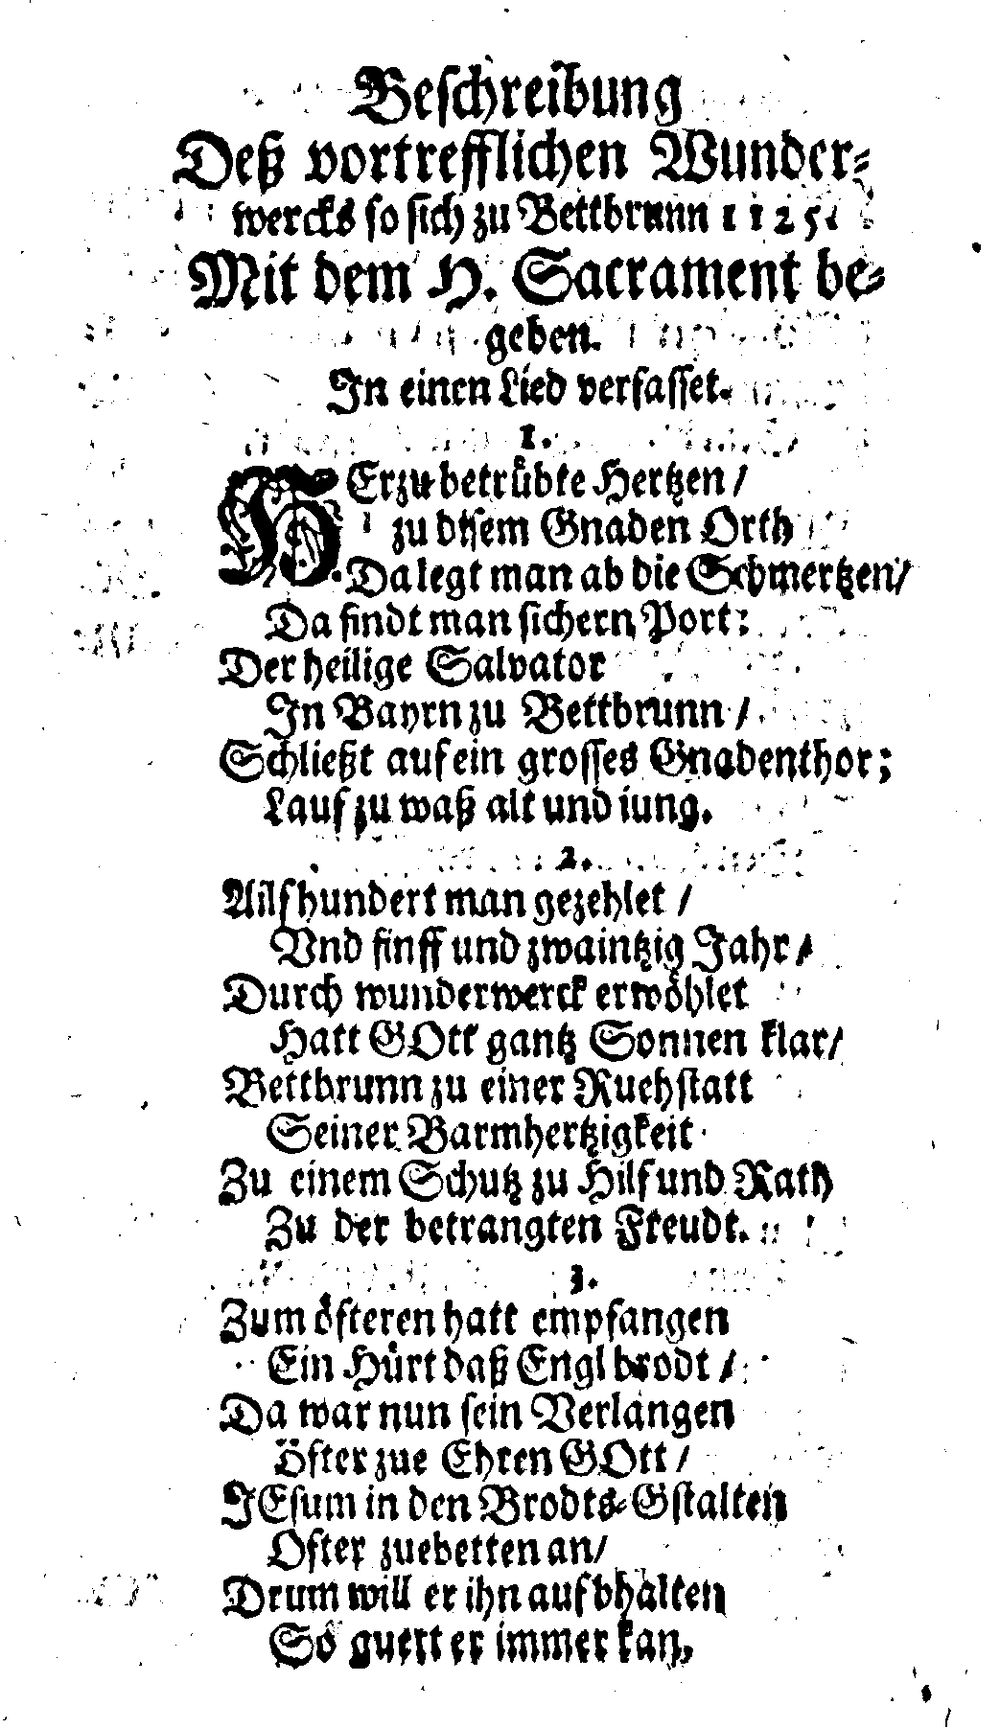 Beschreibung
Deß vortrefflichen Wunder-
wercks so sich zu Bettbrunn 1125.
Mit dem H. Sacrament be-
geben.
In einen Lied verfasset.
1.
HErzu betrübte Hertzen /
zu disem Gnaden Orth
Da legt man ab die Schmertzen /
Da findt man sichern Port:
Der heilige Salvator
In Bayrn zu Bettbrunn /
Schließt auf ein grosses Gnadenthor;
Lauf zu waß alt und iung.
2.
Ailfhundert man gezehlet /
Vnd finff und zwaintzig Jahr /
Durch wunderwerck erwöhlet
Hatt GOtt gantz Sonnen klar /
Bettbrunn zu einer Ruehstatt
Seiner Barmhertzigkeit
Zu einem Schutz zu Hilf und Rath
Zu der betrangten Freudt.
3.
Zum öfteren hatt empfangen
Ein Hürt daß Engl brodt /
Da war nun sein Verlangen
Öfter zue Ehren GOtt /
JEsum in den Brodts-Gstalten
Ofter zuebetten an /
Drum will er ihn aufbhalten
So guett er immer kan,